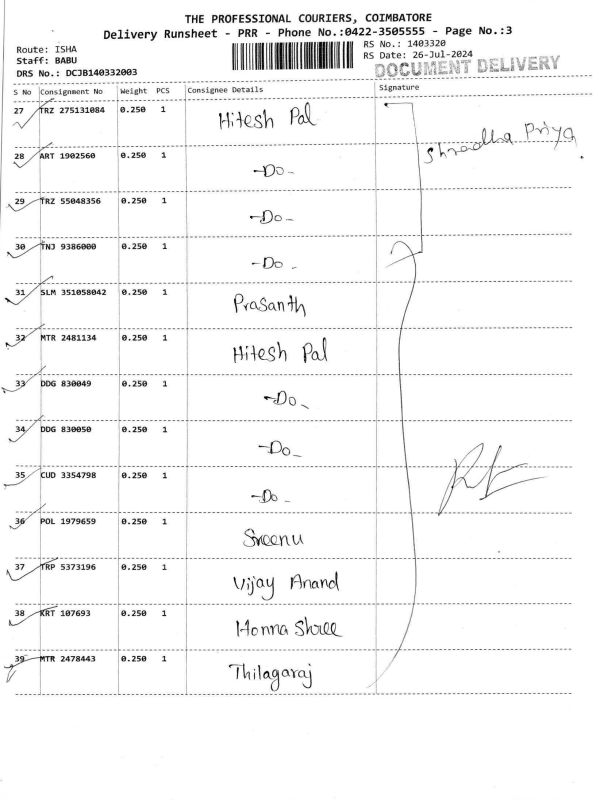 THE PROFESSIONAL COURIERS, COIMBATORE
Delivery Runsheet - PRR - Phone No.:0422-3505555 - Page No.:3
Route: ISHA
Staff: BABU
DRS No.: DCJB140332003
RS No.: 1403320
RS Date: 26-Jul-2024
DOCUMENT DELIVERY
S No Consignment No Weight PCS Consignee Details Signature
27 TRZ 275131084 0.250 1 Hitesh Pal
Shradha Priya
28 ART 1902560 0.250 1 -Do-
29 TRZ 55048356 0.250 1 -Do-
30 TNJ 9386000 0.250 1 -Do-
31 SLM 351058042 0.250 1 Prasanth
32 MTR 2481134 0.250 1 Hitesh Pal
33 DDG 830049 0.250 1 -Do-
34 DDG 830050 0.250 1 -Do-
35 CUD 3354798 0.250 1 -Do-
36 POL 1979659 0.250 1 Sreenu
37 TRP 5373196 0.250 1 Vijay Anand
38 KRT 107693 0.250 1 Honna Shree
39 MTR 2478443 0.250 1 Thilagaraj